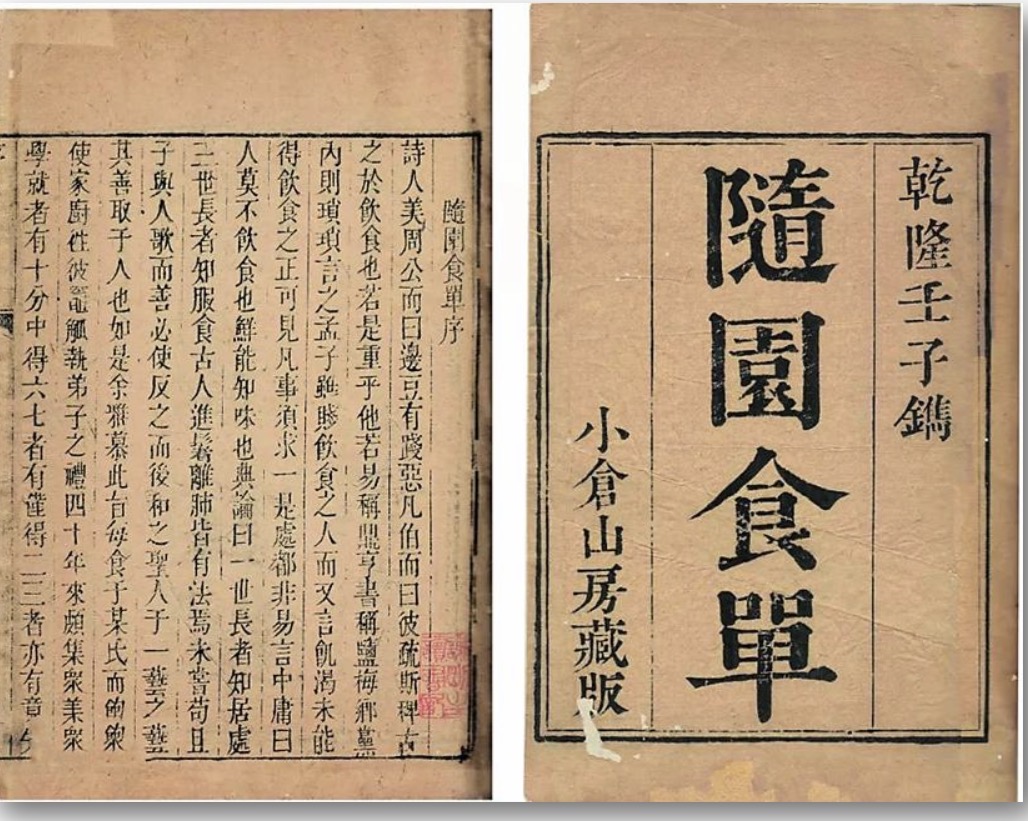 乾隆壬子鐫
隨園食單
小倉山房藏版
隨園食單序
詩人美周公而曰邊豆有踐惡凡伯而曰彼疏斯稗古
之於飲食也若是重乎他若易稱鼎亨書稱鹽梅鄉黨
內則瑣瑣言之孟子雖賤飲食之人而又言飢渴未能
得飲食之正可見凡事須求一是處都非易言中庸曰
人莫不飲食也鮮能知味也典論曰一世長者知居處
三世長者知服食古人進鬐離肺皆有法焉未嘗苟且
子與人歌而善必使反之而後和之聖人于一藝之
其善取于人也如是余雅慕此旨每食于某氏而飽必
使家廚往彼竈觚執弟子之禮四十年來頗集衆美
學就者有十分中得六七者有僅得二三者亦有竟